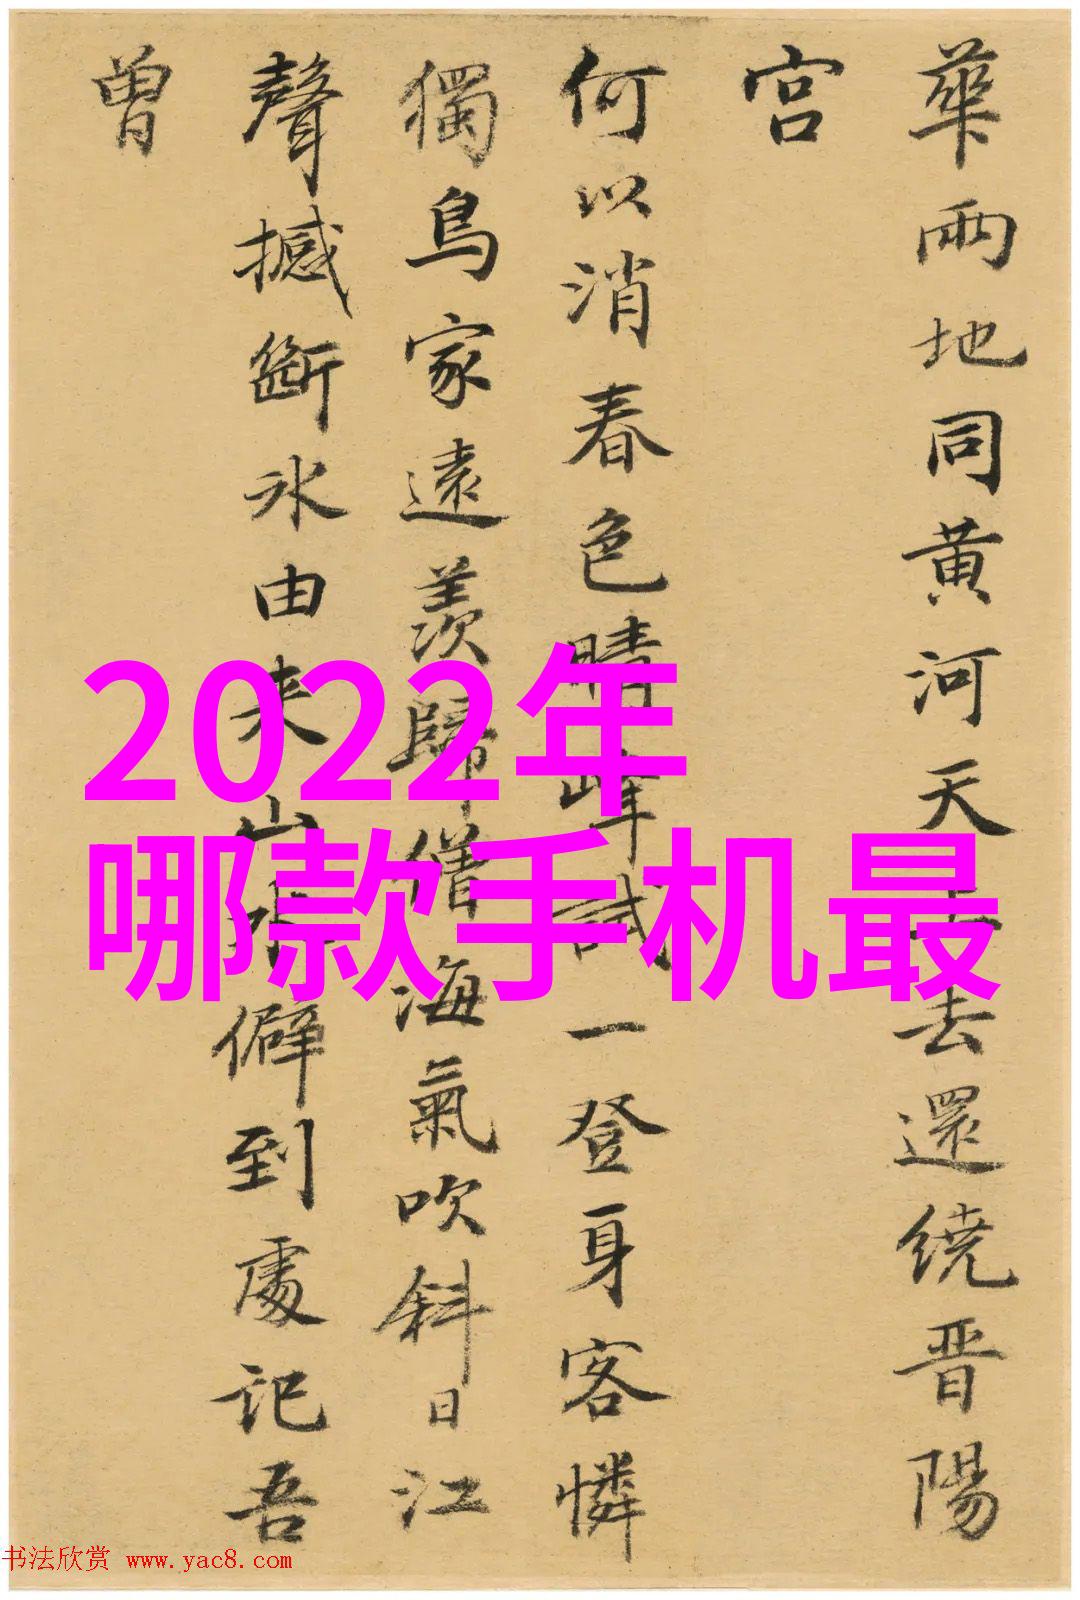 華兩地同黄河天上去還繞晋陽
宫
何以消春色晴峰試一登身客憐
獨鳥家遠羨歸僧海氣吹斜日江
聲撼斷氷由来山水僻到處記吾
曾
2022年
哪款手机最
书法欣赏 www.yac8.com